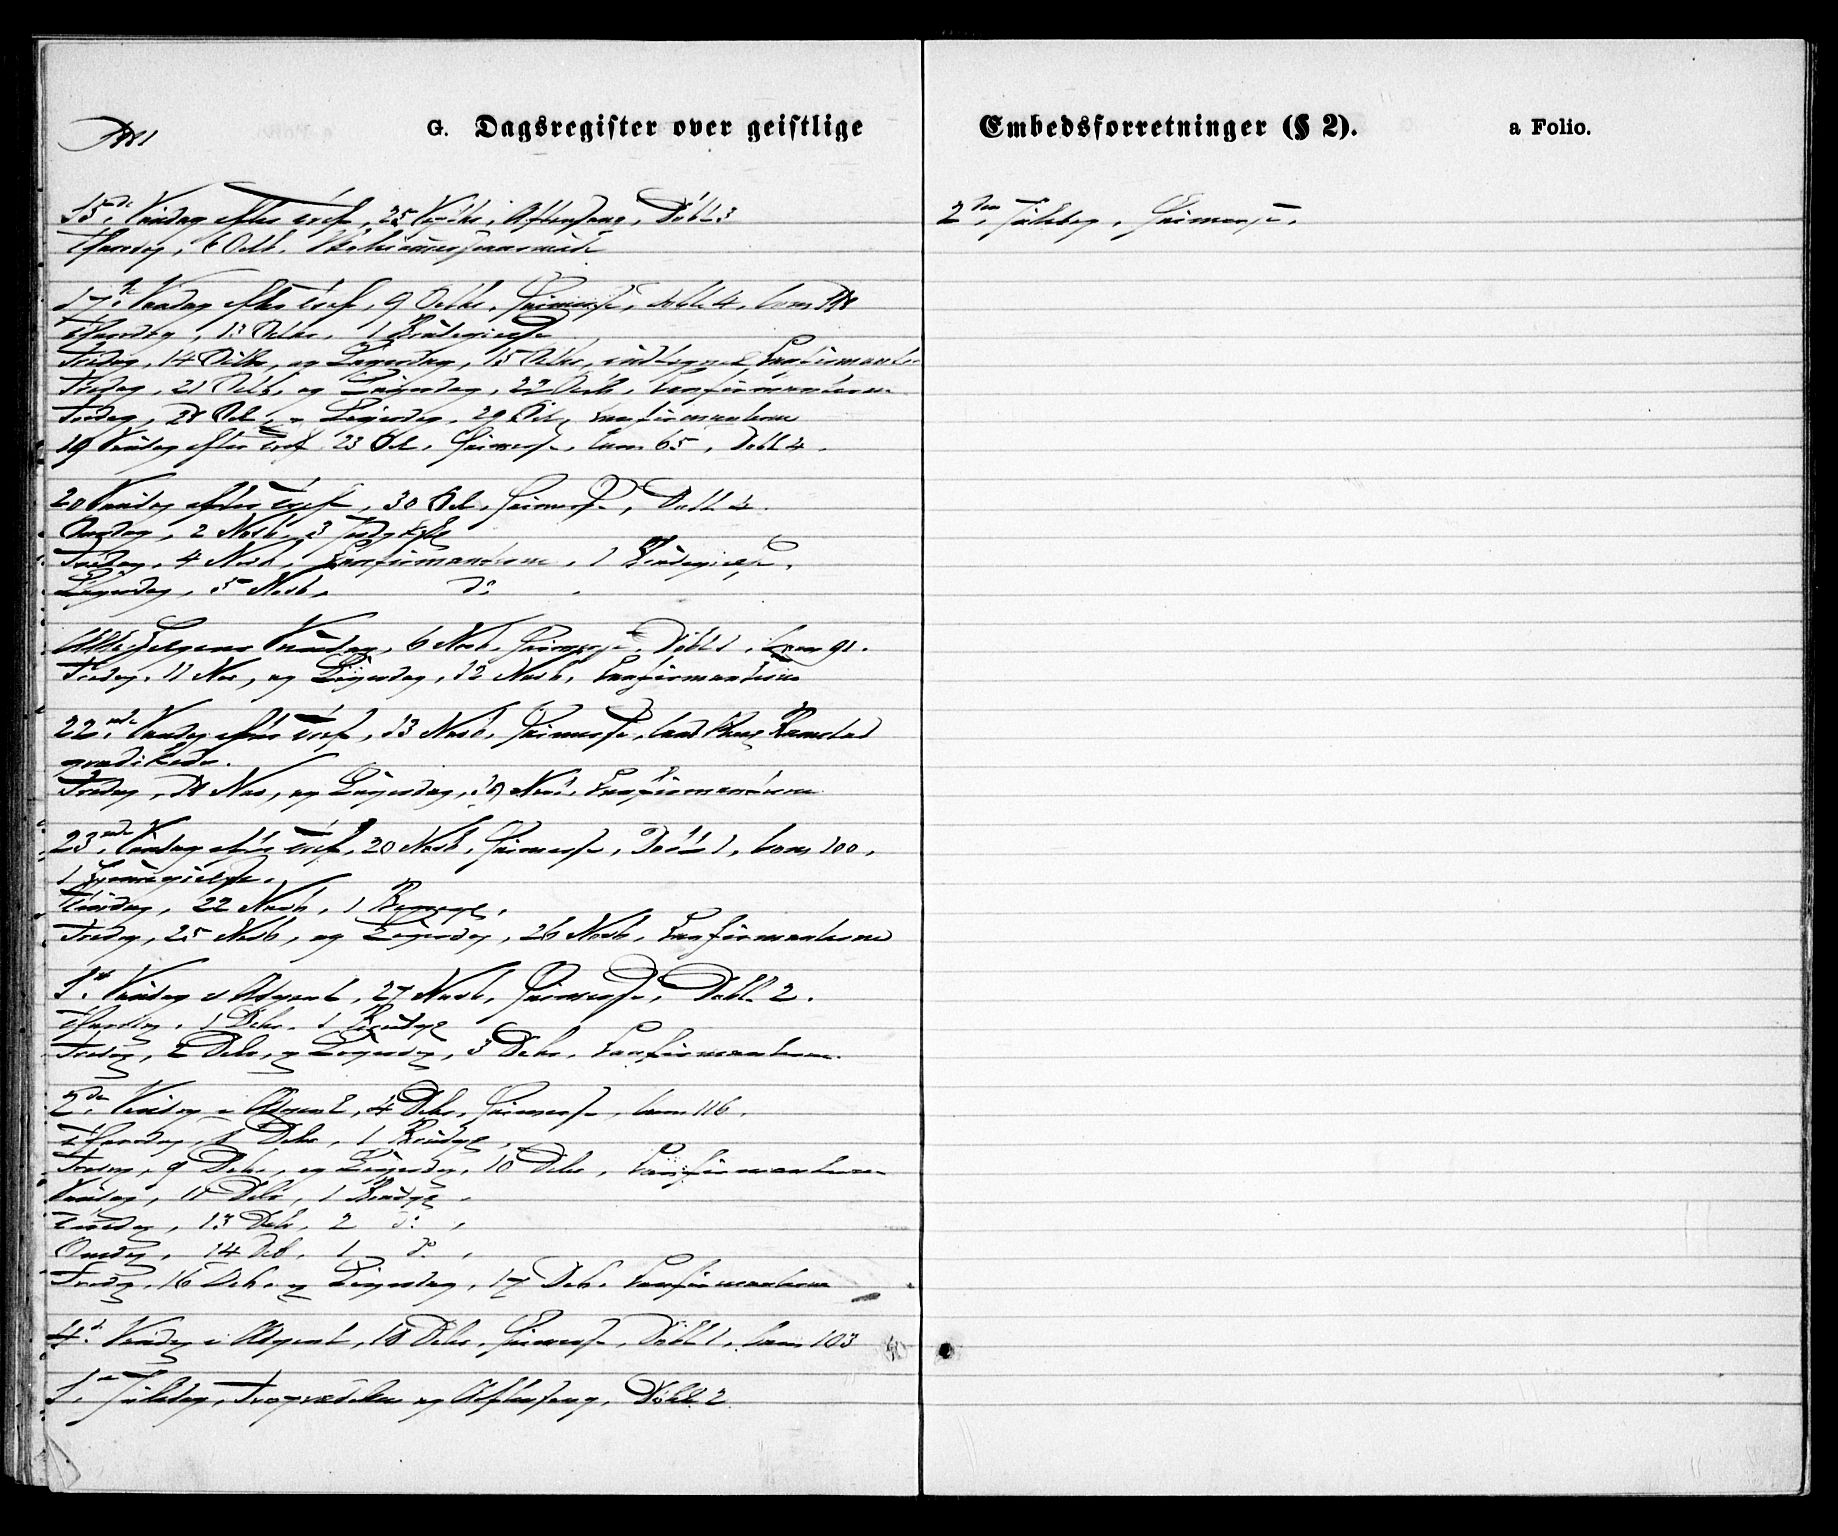 1881
G. Dagsregister over geistlige
15de Søndag efter Tref, 25 Septbr, Aftensang, Døbt 3
Thorsdag, 6 Octb.
17de Søndag efter Tref, 9 Octbr, Høimesse, Døbt 4, Com 78
Thorsdag, 13 Octbr, 1 Brudevielse
Fredag, 14 Octbr, og Løverdag, 15 Octbr, indtegnet Confirmanter
Fredag, 21 Octb, og Løverdag, 22 Octb, Confirmanterne
Fredag, 28 Oct, og Løverdag, 29 Oct, Confirmanterne
19 Søndag efter Tref 23 Oct, Høimesse, Com 65, Døbt 4.
20 Søndag efter Tref, 30 Oct, Høimesse, Døbt 4.
Onsdag, 2 Novb, 3
Fredag, 4 Novb, Confirmanterne, 1 Brudevielse.
Løverdag, 5 Novb, do
Allehelgens Søndag, 6 Novb, Høimesse, Døbt 1, Com 91.
Fredag, 11 Nov, og Løverdag, 12 Novb, Confirmanterne
22nde Søndag efter Tref, 13 Novb, Høimesse, Cand Ramstad
prædikede.
Fredag, 18 Nov, og Løverdag, 19 Nov, Confirmanterne
23nde Søndag efter Tref, 20 Novb, Høimesse, Døbt 1, Com 100,
1
Tirsdag, 22 Novb, 1
Fredag, 25 Novb, og Løverdag, 26 Novb, Confirmanterne
1st Søndag i Advent, 27 Novb, Høimesse, Døbt 2.
Thorsdag, 1 Debr, 1 Brudev
Fredag, 2 Debr, og Løverdag, 3 Debr, Confirmanterne
2den Søndag i Advent, 4 Debr, Høimesse, Com 116.
Thorsdag, 8 Debr, 1 Brudev,
Fredag, 9 Debr, og Løverdag, 10 Debr, Confirmanterne
Søndag, 11 Debr, 1 Brudev,
Tirsdag, 13 Deb, 2 do,
Onsdag, 14 Deb, 1 do,
Fredag, 16 Deb, og Løverdag, 17 Deb, Confirmanterne
4de Søndag i Advent, 18 Debr, Høimesse, Døbt 1, Com 103
1ste Juledag, Froprædiken og Aftensang, Døbt 2
Embedsforretninger (§ 2).
a Folio.
2den Juledag, Høimesse,